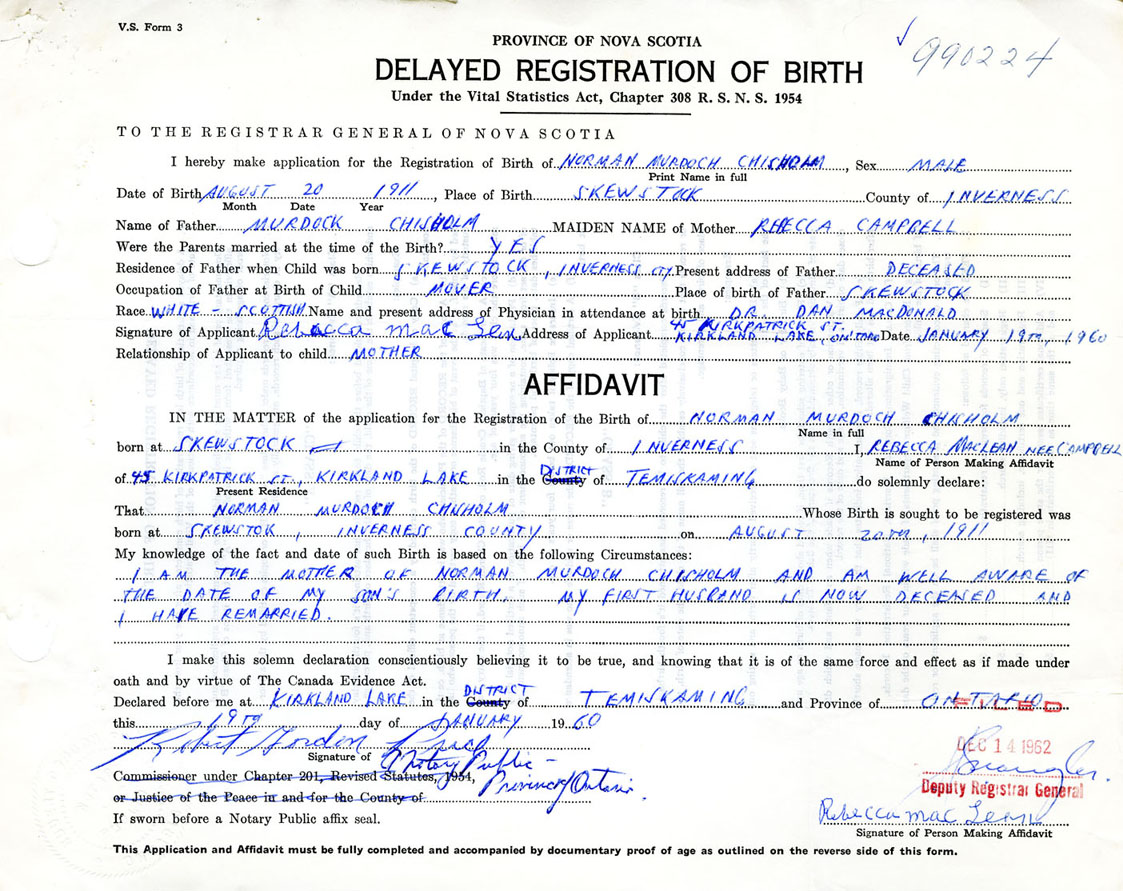 V.S. Form 3
990224
PROVINCE OF NOVA SCOTIA
DELAYED REGISTRATION OF BIRTH
Under the Vital Statistics Act, Chapter 308 R. S. N. S. 1954
TO THE REGISTRAR GENERAL OF NOVA SCOTIA
I hereby make application for the Registration of Birth of NORMAN MURDOCH CHISHOLM, Sex MALE
Print Name in full
Date of Birth AUGUST 20 1911, Place of Birth SKEWSTOCK County of INVERNESS
Month Date Year
Name of Father MURDOCK CHISHOLM MAIDEN NAME of Mother REBECCA CAMPBELL
Were the Parents married at the time of the Birth? YES
Residence of Father when Child was born SKEWSTOCK, INVERNESS CTY. Present address of Father DECEASED
Occupation of Father at Birth of Child MOVER Place of birth of Father SKEWSTOCK
Race WHITE - SCOTTISH Name and present address of Physician in attendance at birth DR. DAN MACDONALD
Signature of Applicant Rebecca Mac Lean Address of Applicant 45 KIRKPATRICK ST. KIRKLAND LAKE, ONTARIO Date JANUARY 19TH, 1960
Relationship of Applicant to child MOTHER
AFFIDAVIT
IN THE MATTER of the application for the Registration of the Birth of NORMAN MURDOCH CHISHOLM
Name in full
born at SKEWSTOCK in the County of INVERNESS I, REBECCA MACLEAN NEE CAMPBELL
Name of Person Making Affidavit
of 45 KIRKPATRICK ST., KIRKLAND LAKE in the County DISTRICT of TEMISKAMING do solemnly declare:
Present Residence
That NORMAN MURDOCH CHISHOLM Whose Birth is sought to be registered was
born at SKEWSTOK, INVERNESS COUNTY on AUGUST 20TH, 1911
My knowledge of the fact and date of such Birth is based on the following Circumstances:
I AM THE MOTHER OF NORMAN MURDOCH CHISHOLM AND AM WELL AWARE OF
THE DATE OF MY SON'S BIRTH. MY FIRST HUSBAND IS NOW DECEASED AND
I HAVE REMARRIED.
I make this solemn declaration conscientiously believing it to be true, and knowing that it is of the same force and effect as if made under
oath and by virtue of The Canada Evidence Act.
Declared before me at KIRKLAND LAKE in the County DISTRICT of TEMISKAMING and Province of ONTARIO
FILED
this 19TH day of JANUARY 1960
Robert Gordon
DEC 14 1962
Signature of A Notary Public -
Commissioner under Chapter 201, Revised Statutes, 1954, Province of Ontario.
Deputy Registrar General
or Justice of the Peace in and for the County of
Rebecca Mac Lean
If sworn before a Notary Public affix seal.
Signature of Person Making Affidavit
This Application and Affidavit must be fully completed and accompanied by documentary proof of age as outlined on the reverse side of this form.